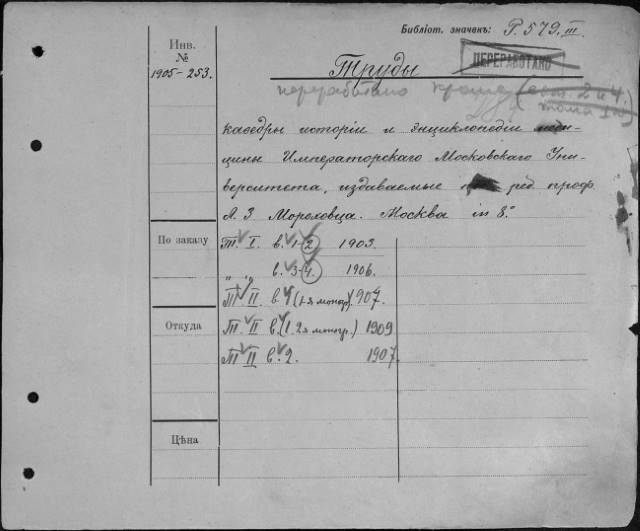 Библіот. значекъ: P. 579 III.
Инв. №
1905-253.
ПЕРЕРАБОТАНО
Труды
переработано кроме (вып. 2 и 4
тома I)
каѳедры исторіи и энциклопедіи меди-
цины Императорскаго Московскаго Уни-
верситета, издаваемые ред. проф.
Л. З Мороховца. Москва in 8°
По заказу
Т. I. в. 1-2 1903.
„ „ в. 3-4. 1906.
Т. II. в. 1 (1-я моногр.) 1907.
Откуда
Т. II в. (1. 2я моногр.) 1909
Т II в. 2. 1907.
Цѣна